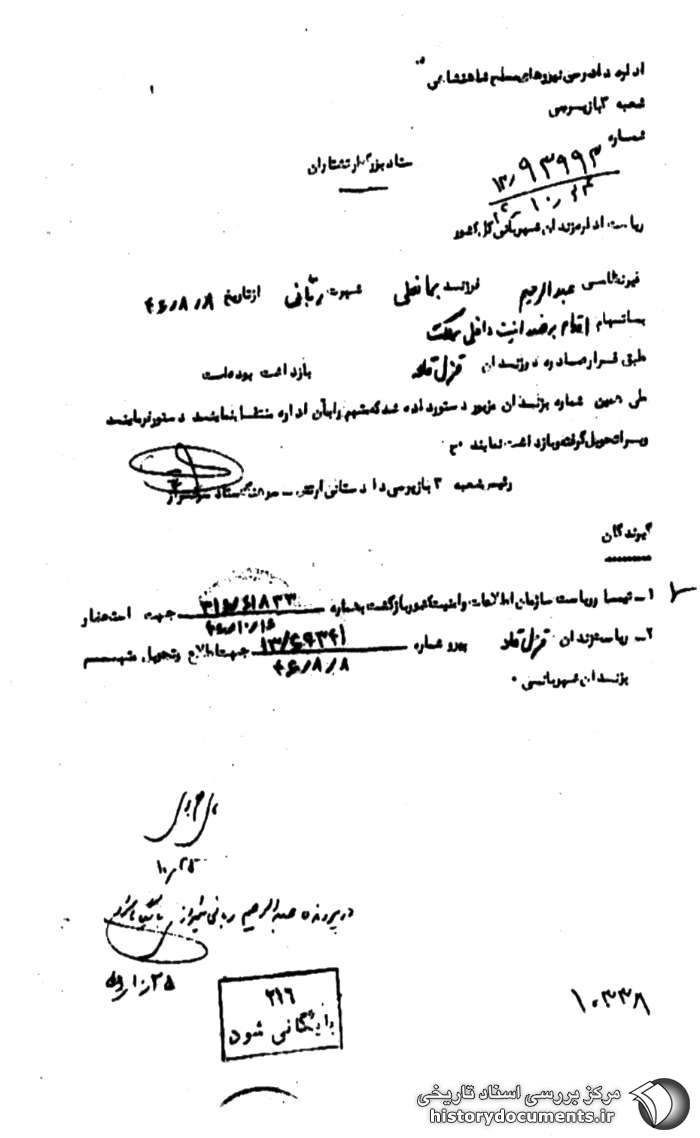 اداره دادرسی نیروهای مسلح شاهنشاهی
شعبه ۳ بازپرسی
شماره ۱۲/۹۳۹۹۳
ستاد بزرگ ارتشتاران
ریاست اداره زندان شهربانی کل کشور
غیرنظامی عبدالرحیم فرزند بمانعلی شهرت ربانی از تاریخ ۴۶/۸/۸
باتهام اقدام بر ضد امنیت داخلی مملکت
طبق قرار صادره در زندان قزل قلعه بازداشت بوده است
طی همین شماره بزندان مزبور دستور داده شد که متهم را بآن اداره منتقل نمایند دستور فرمایند
ویرا تحویل گرفته و بازداشت نمایند
رئیس شعبه ۳ بازپرسی دادستانی ارتش
گیرندگان
۱- تیمسار ریاست سازمان اطلاعات و امنیت کشور بازگشت بشماره ۳۱۶/۶۱۸۳۳ جهت استحضار
۴۶/۱۰/۱۶
۲- ریاست زندان قزل قلعه پیرو شماره ۱۳/۶۹۳۴۱ جهت اطلاع و تحویل متهم
۴۶/۸/۸
بزندان شهربانی .
۱۰/۲۵
در پرونده عبدالرحیم ربانی شیرازی بایگانی شود
۲۵/۱۰
۳۱۶
بایگانی شود
۱۰۳۳۸
مرکز بررسی اسناد تاریخی
historydocuments.ir